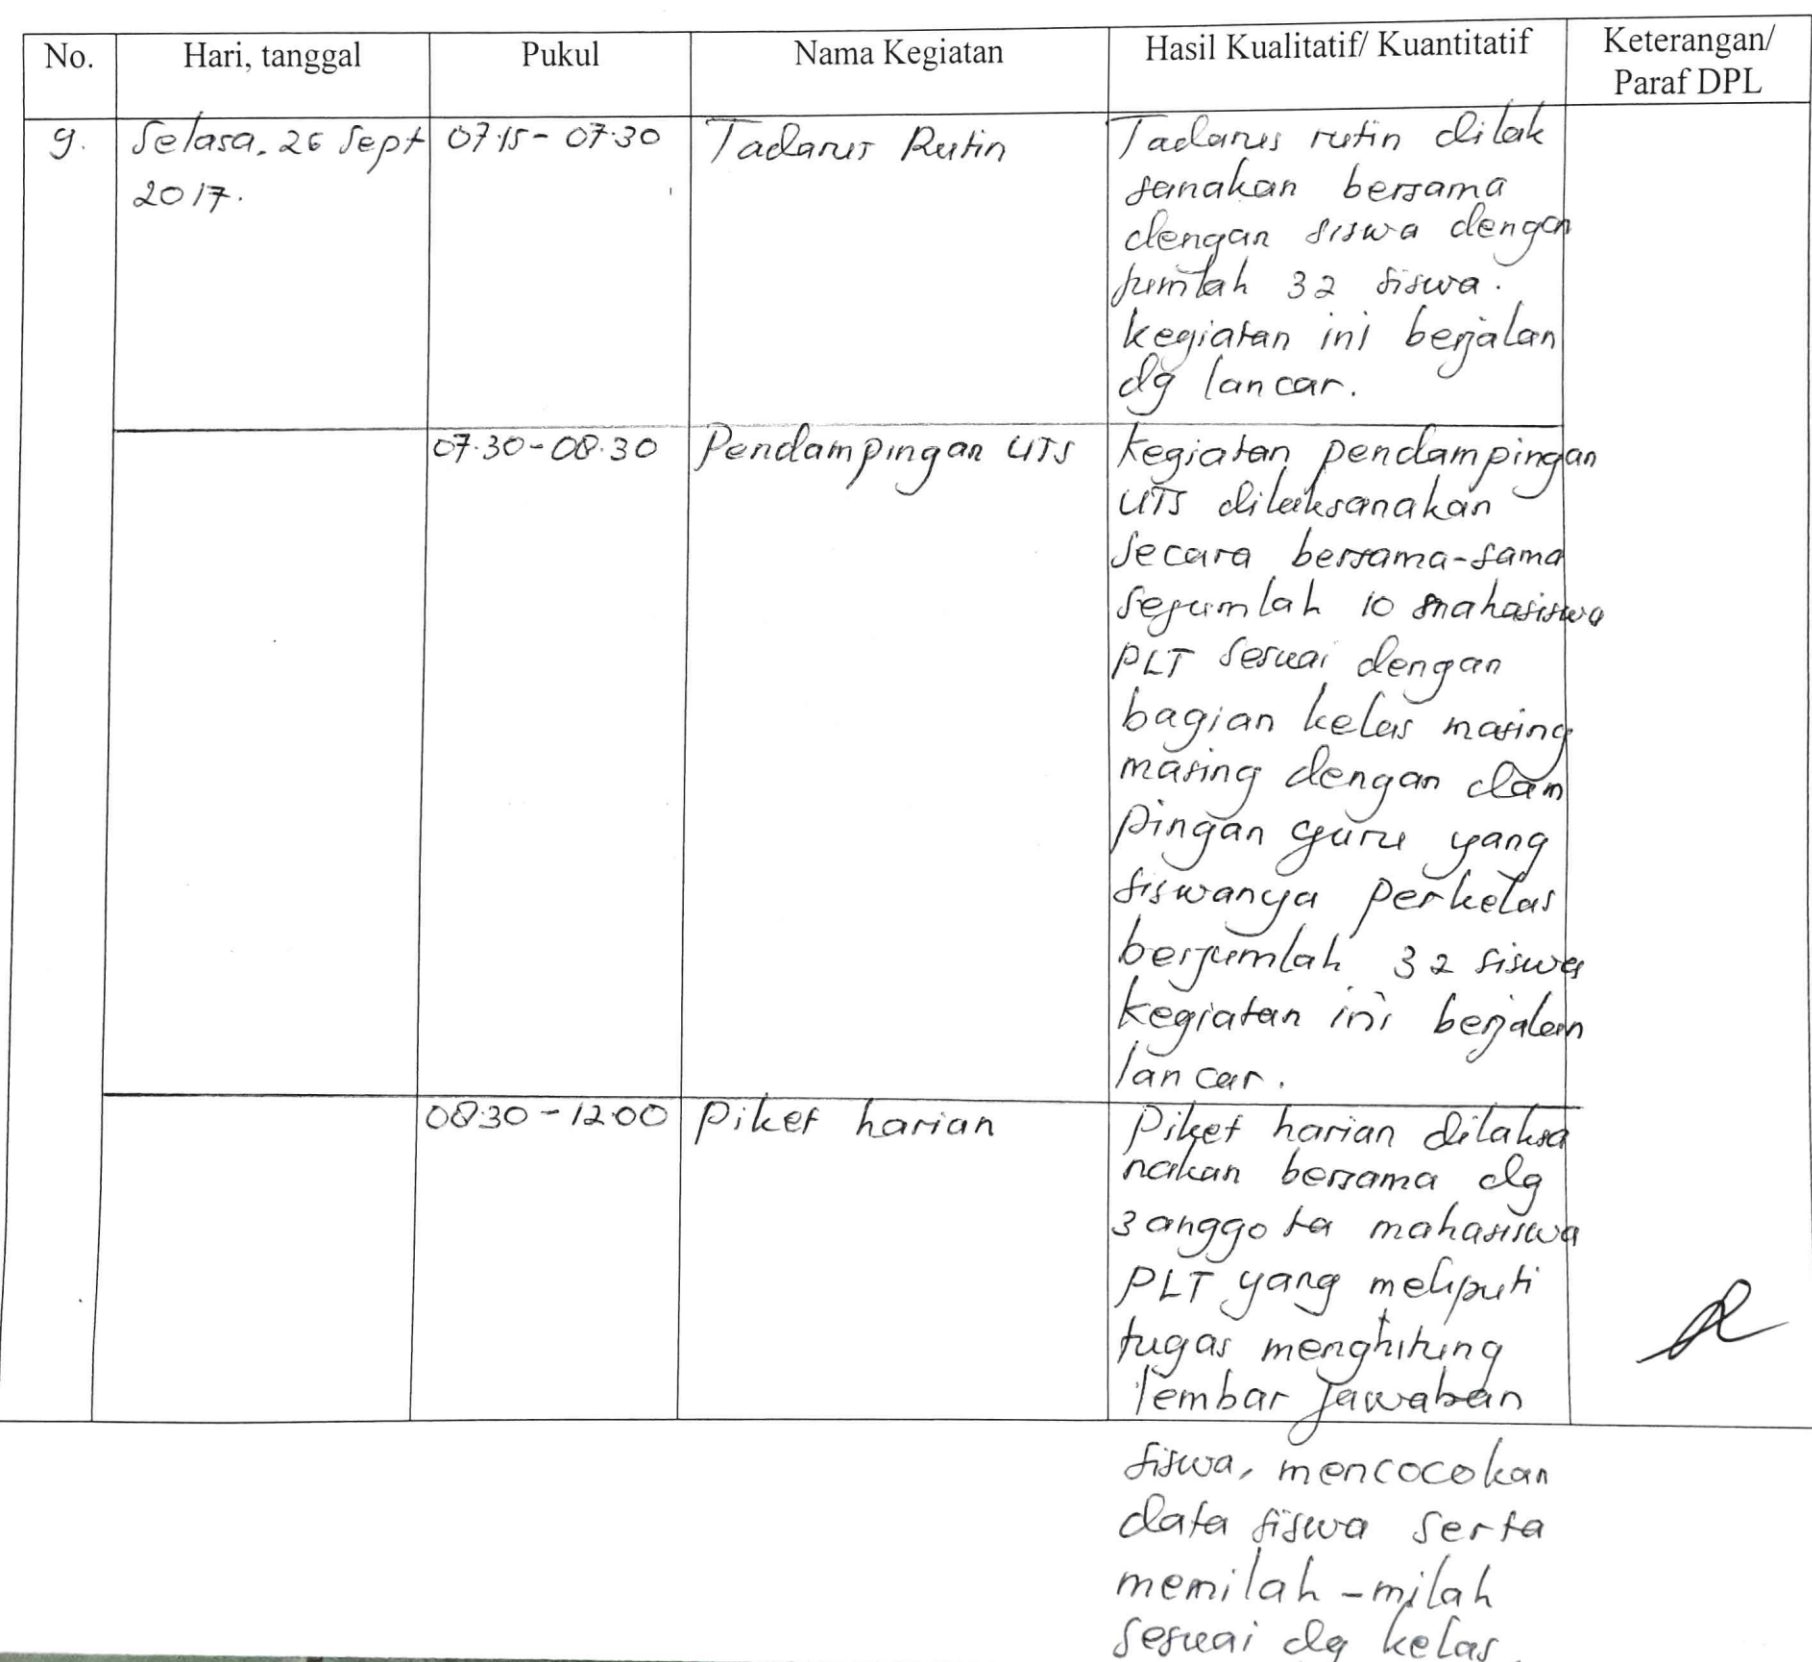 No. Hari, tanggal Pukul Nama Kegiatan Hasil Kualitatif/ Kuantitatif Keterangan/
Paraf DPL
9. Selasa, 26 Sept 07.15 - 07.30 Tadarus Rutin Tadarus rutin dilak
2017. sanakan bersama
dengan siswa dengan
jumlah 32 siswa.
kegiatan ini berjalan
dg lancar.
07.30 - 08.30 Pendampingan UTS Kegiatan pendampingan
UTS dilaksanakan
secara bersama-sama
sejumlah 10 mahasiswa
PLT sesuai dengan
bagian kelas masing
masing dengan dam
pingan guru yang
siswanya perkelas
berjumlah 32 siswa
kegiatan ini berjalan
lancar.
08.30 - 12.00 Piket harian Piket harian dilaksa
nakan bersama dg
3 anggota mahasiswa
PLT yang meliputi
tugas menghitung
lembar jawaban
siswa, mencocokan
data siswa serta
memilah - milah
sesuai dg kelas.